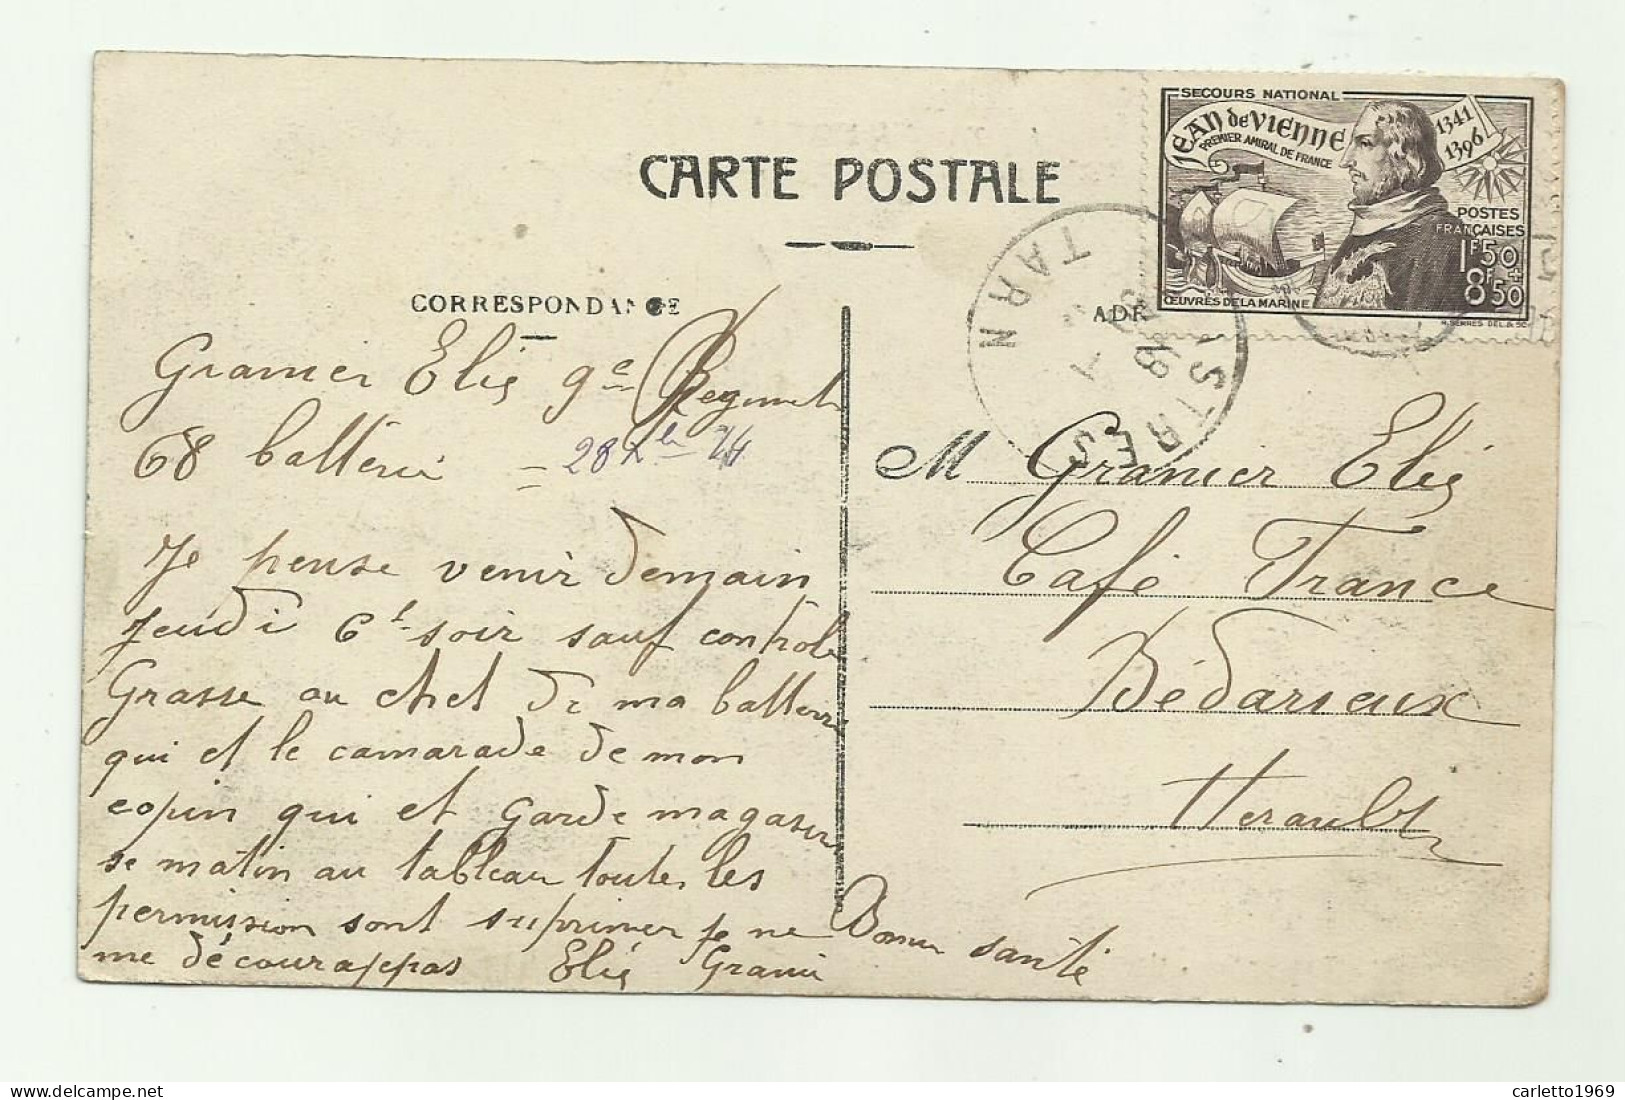 CARTE POSTALE
SECOURS NATIONAL
JEAN de VIENNE
PREMIER AMIRAL DE FRANCE
1341
1396
POSTES
FRANÇAISES
1F50
+
8F50
ŒUVRES DE LA MARINE
TARN
STRES
CORRESPONDANCE
ADR
Granier Elie 9e Regiment
68 batterie = 28
Je pense venir demain
jeudi 6 soir sauf controle
Grasse au chef de ma batterie
qui et le camarade de mon
copin qui et garde magasin
se matin au tableau toutes les
permission sont suprimer je ne
me décourappas Elie Granier
Bonne santé
M Granier Elie
Café France
Bédarieux
Herault
carletto1969